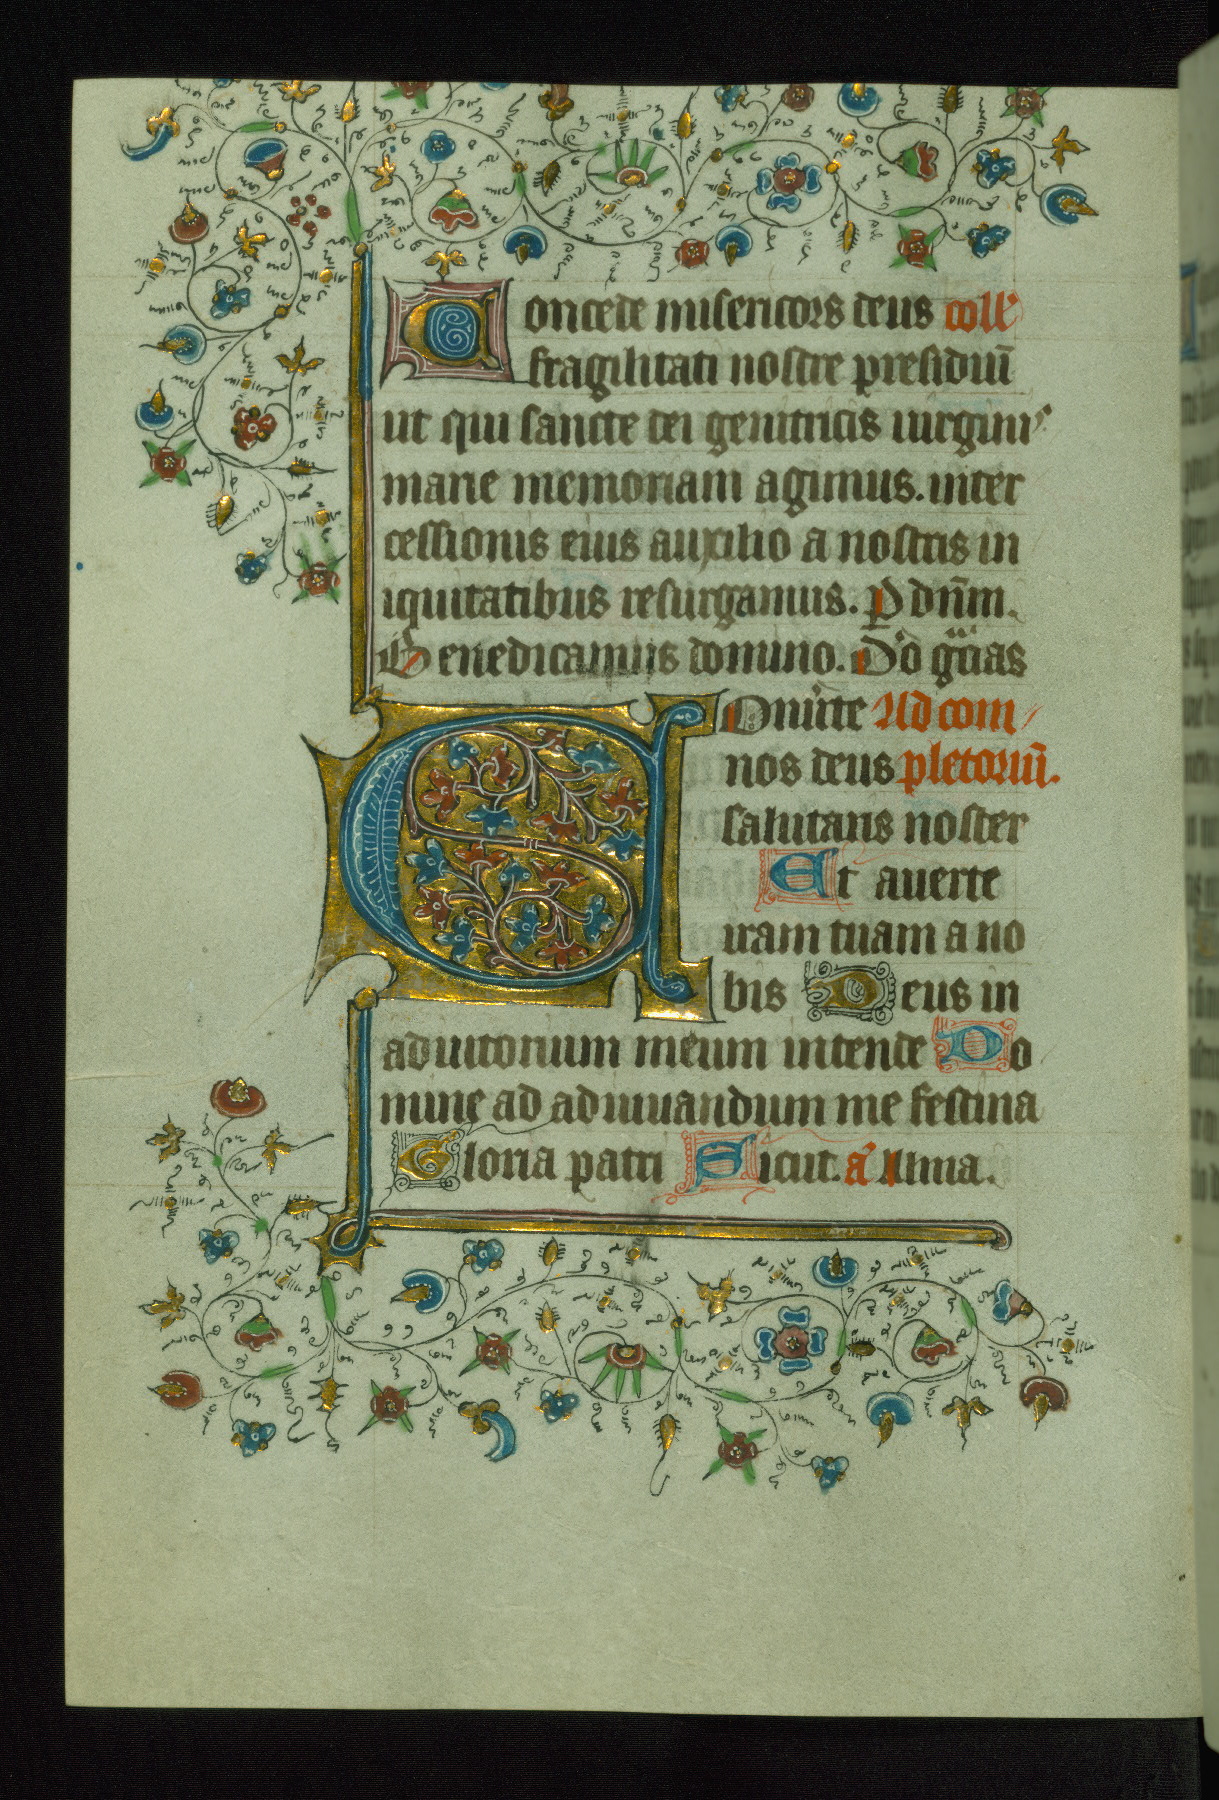 Concede misericors deus coll'
fragilitati nostre presidiū
ut qui sancte dei genitricis uirgini⁹
marie memoriam agimus. inter
cessionis eius auxilio a nostris in
iquitatibus resurgamus. P dnm̄.
Benedicamus domino. Do gr̄as
Conu'te Ad com
nos deus pletoriū.
salutaris noster
Et auerte
iram tuam a no
bis Deus in
adiutorium meum intende Do
mine ad adiuuandum me festina
Gloria patri Sicut. a᷒ Alma.